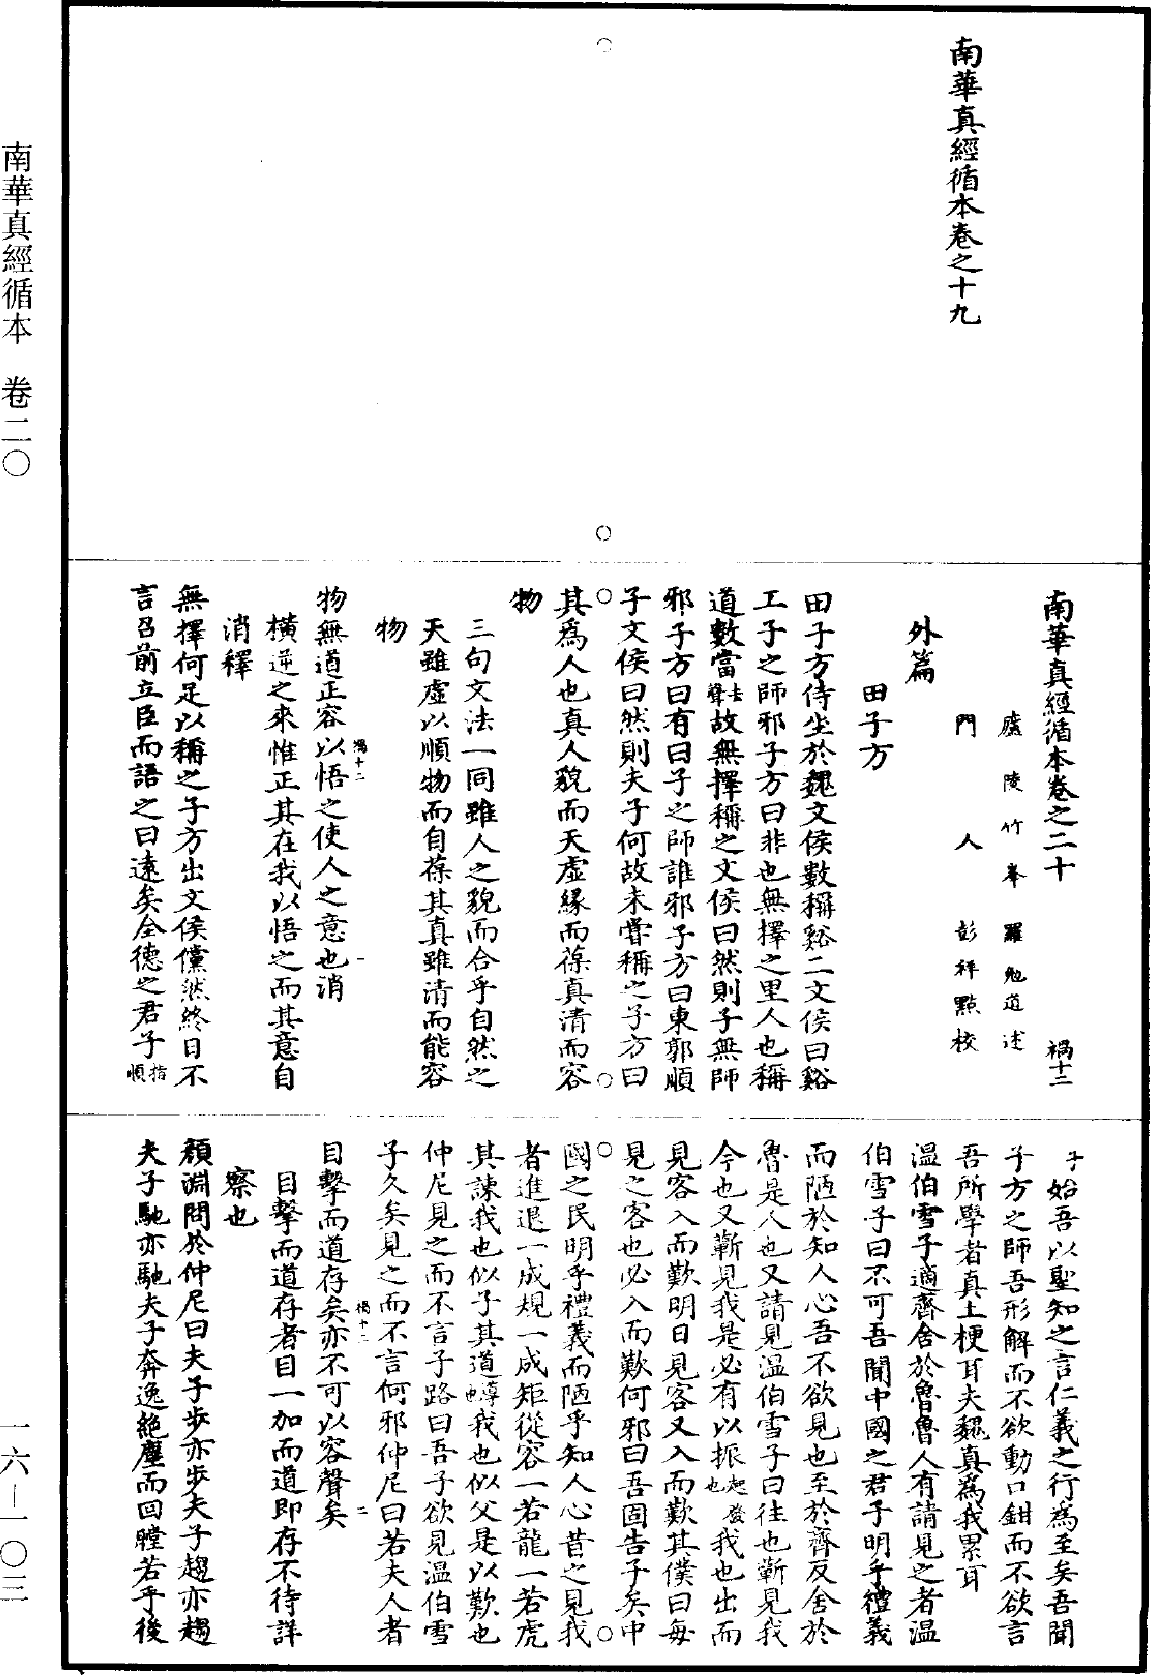 南華真經循本卷之十九
南華真經循本卷之二十 禍十二
廬陵竹峯羅勉道述
門人彭祥點校
外篇
田子方
田子方侍坐於魏文侯數稱谿工文侯曰谿
工子之師邪子方曰非也無擇之里人也稱
道數當去聲故無擇稱之文侯曰然則子無師
邪子方曰有曰子之師誰邪子方曰東郭順
子文侯曰然則夫子何故未嘗稱之子方曰
其為人也真人貌而天虛緣而葆真清而容
物
三句文法一同雖人之貌而合乎自然之
天雖虛以順物而自葆其真雖清而能容
物
物無道正容以悟之使人之意也消
禍十二 一
橫逆之來惟正其在我以悟之而其意自
消釋
無擇何足以稱之子方出文侯儻然終日不
言召前立臣而語之曰遠矣全德之君子指順
子始吾以聖知之言仁義之行為至矣吾聞
子方之師吾形解而不欲動口鉗而不欲言
吾所學者真土梗耳夫魏真為我累耳
溫伯雪子適齊舍於魯魯人有請見之者溫
伯雪子曰不可吾聞中國之君子明乎禮義
而陋於知人心吾不欲見也至於齊反舍於
魯是人也又請見溫伯雪子曰往也蘄見我
今也又蘄見我是必有以振起發也我也出而
見客入而歎明日見客又入而歎其僕曰每
見之客也必入而歎何邪曰吾固告子矣中
國之民明乎禮義而陋乎知人心昔之見我
者進退一成規一成矩從容一若龍一若虎
其諫我也似子其道我也似父是以歎也
仲尼見之而不言子路曰吾子欲見溫伯雪
子久矣見之而不言何邪仲尼曰若夫人者
禍十二 二
目擊而道存矣亦不可以容聲矣
目擊而道存者目一加而道即存不待詳
察也
顏淵問於仲尼曰夫子步亦步夫子趨亦趨
夫子馳亦馳夫子奔逸絕塵而回瞠若乎後
南華真經循本 卷二〇
一六—一〇三